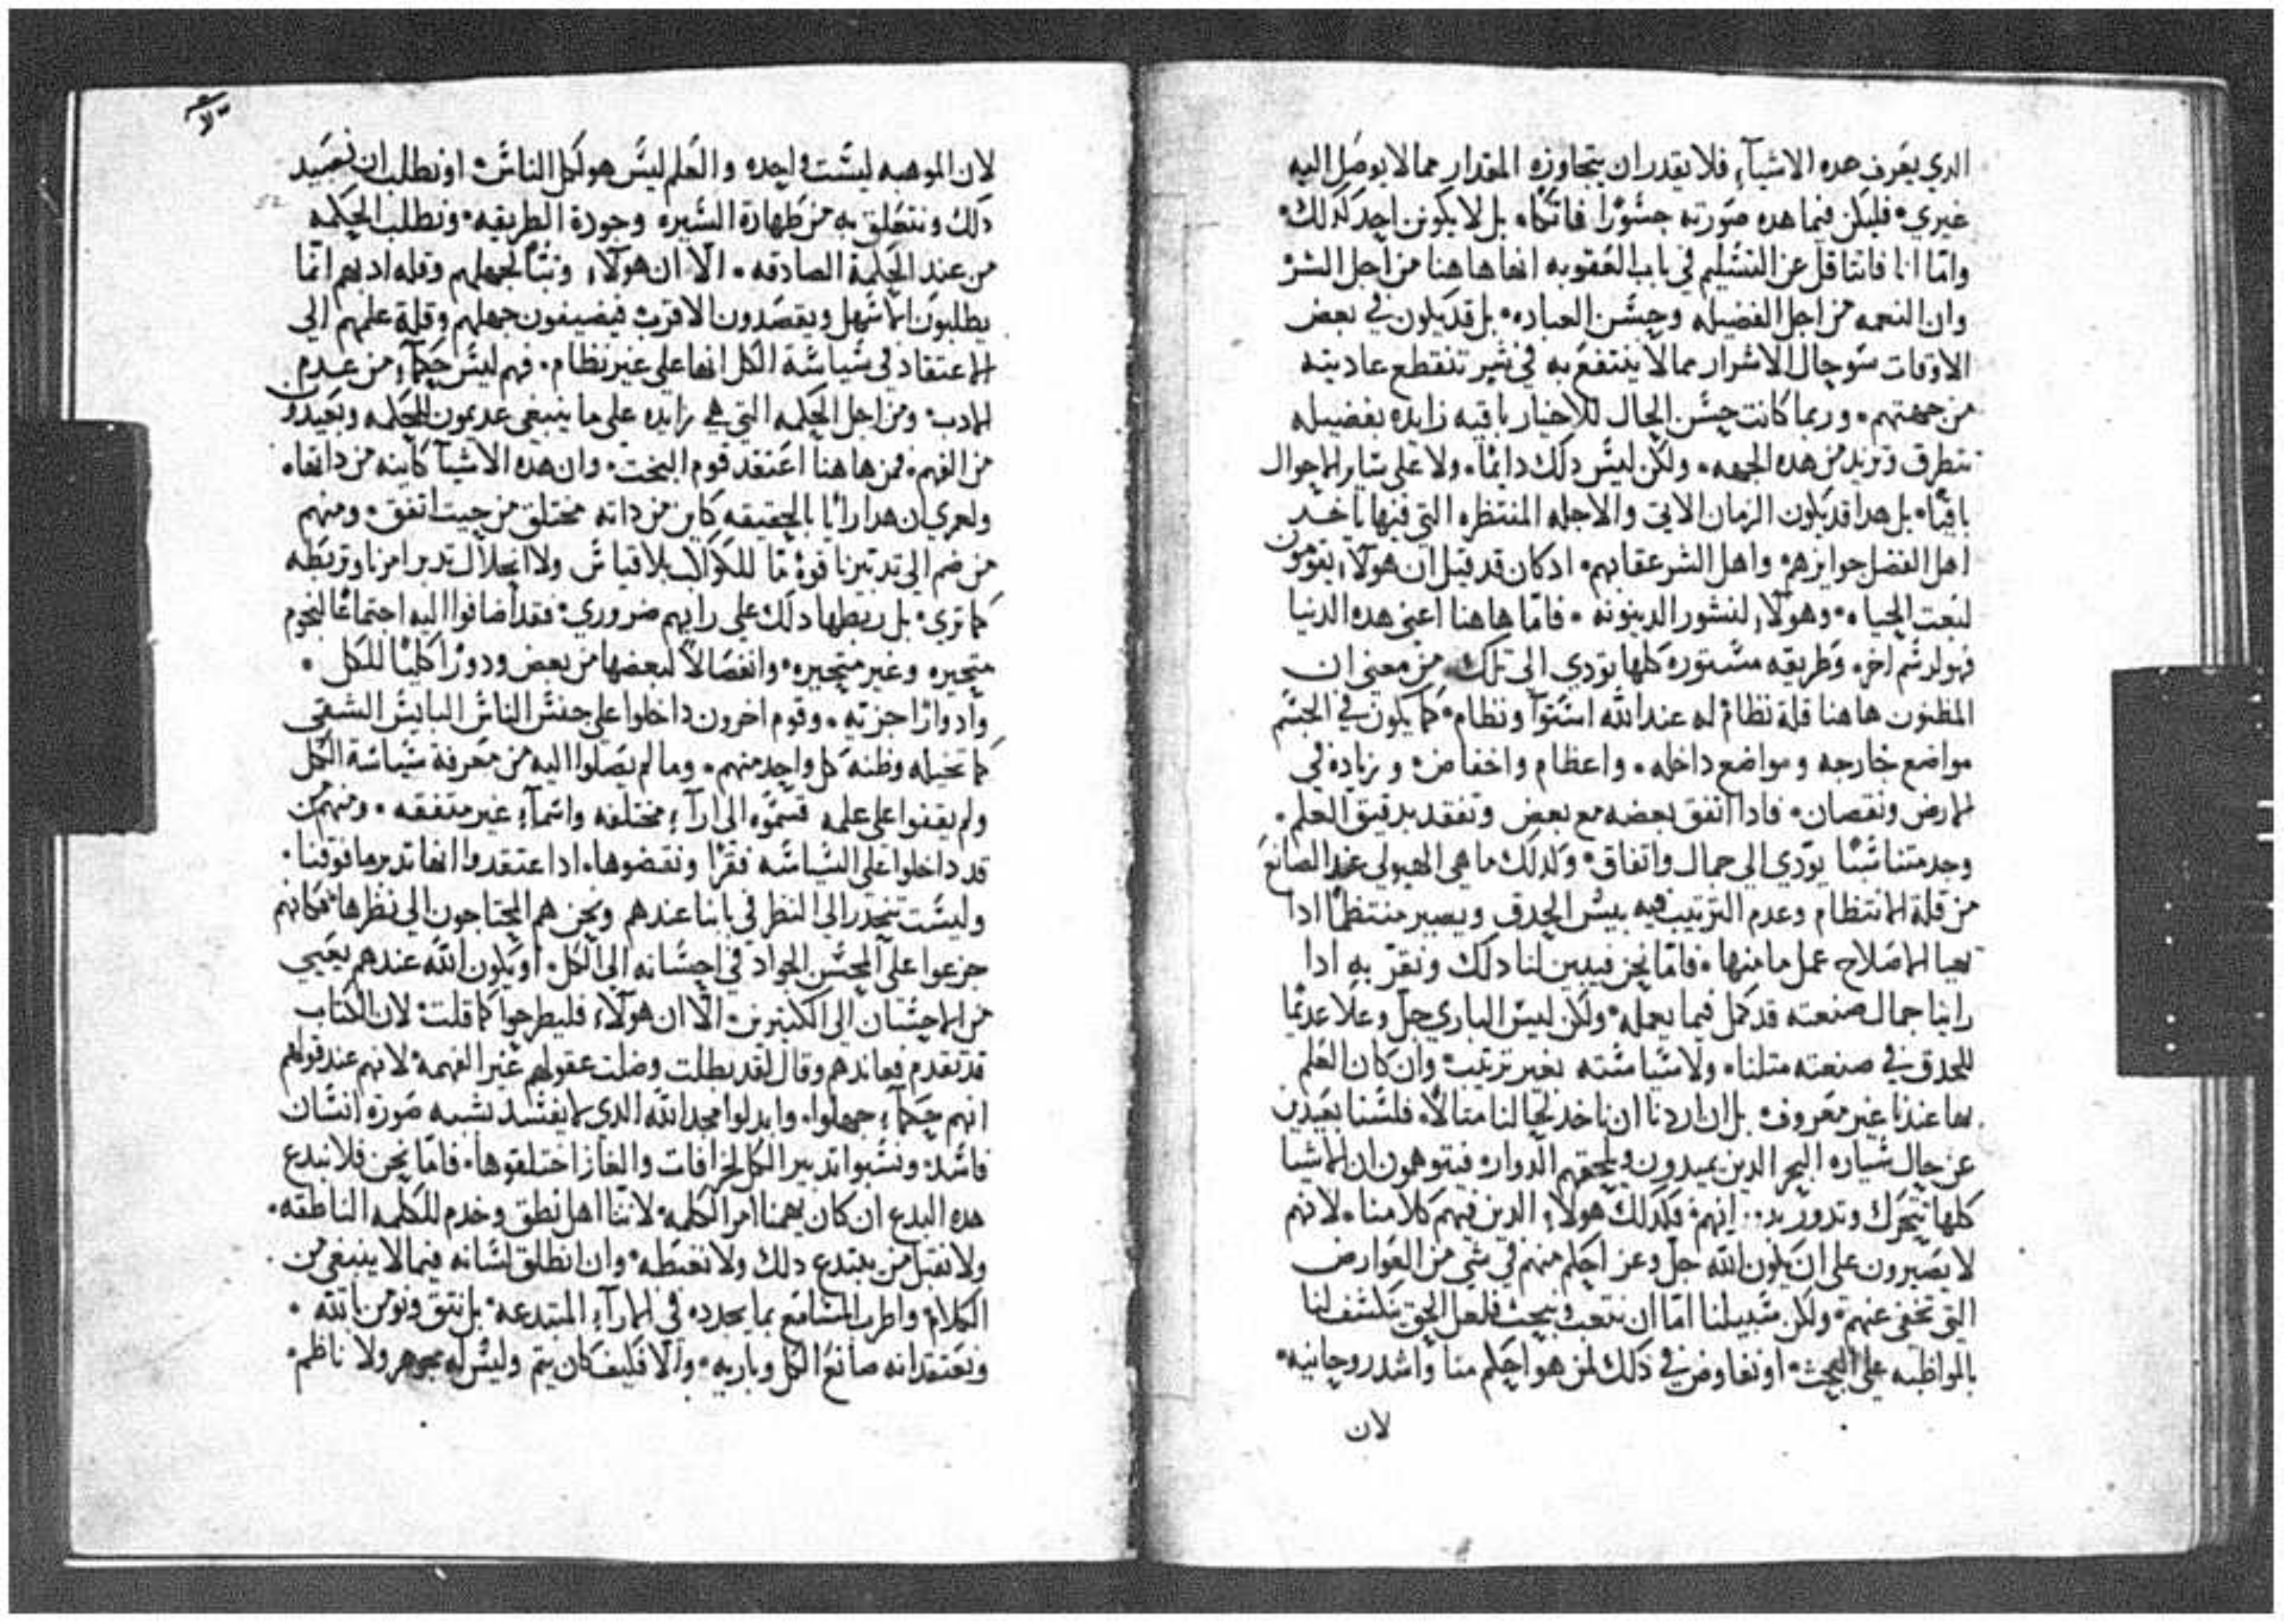 الدي يعرف هده الاشيآء فلا يقدر ان يتجاوزه المقدار مما لا يوصل اليه
غيري. فليكن فيما هده صورته جسورًا فاتكًا. بل لا يكونن احد كدلك.
وامّا انا فاتثاقل عن التسليم في باب العقوبه انها هاهنا من اجل الشر
وان النعمه من اجل الفضيله وحسن العباده. بل قد يكون في بعض
الاوقات سو حال الاشرار مما لا ينتفع به في شر تنقطع عاديته
من جهتهم. وربما كانت حسن الحال للاخيار باقيه زايده بفضيله
تتطرق وتزيد من هده الجهه. ولكن ليس دلك دايمًا. ولا على ساير الاحوال
باقيًا. بل هدا قد يكون الزمان الاتي والاجله المنتظره التي فيها ياخد
اهل الفضل جوايزهم. واهل الشر عقابهم. اد كان قد قيل ان هولآء يقومون
لبعث الحياه. وهولآء لنشور الدينونه. فامّا هاهنا اعني هده الدنيا
فهو لرسم اخر. وطريقه مستوره كلها تودي الى تلك من معني ان
المظنون هاهنا قلة نظام له عند الله استوآء ونظام. كما يكون في الجسم
مواضع خارجه ومواضع داخله. واعظام واخفاض. وزياده في
الارض ونقصان. فادا اتفق بعضه مع بعض وتفقد بدقيق العلم.
وجد متناسبًا يودي الى جمال واتفاق. ولدلك ما هي الهيولي عند الصانع
من قلة الانتظام وعدم الترتيب فيه بيسر الحدق ويصير منتظمًا ادا
تهيا لاصلاح عمل ما منها. فامّا نحن فيبين لنا دلك ونقرّ به ادا
راينا جمال صنعته قد كمل فيما يعمله. ولكن ليس الباري جلّ وعلا عديمًا
للحدق في صنعته مثلنا. ولا سياسته بغير ترتيب. وان كان العلم
بها عندنا غير معروف. بل ان اردنا ان ناخد لحالنا مثالاً. فلسنا بعيدين
عن حال سياره البحر الدين يميدون ويلحقهم الدوار. فيتوهمون ان الاشيا
كلها تتحرك وتدور بدورانهم. فكدلك هولآء الدين فيهم كلامنا. لانهم
لا يصبرون على ان يكون الله جلّ وعز احكم منهم في شي من العوارض
التي تخفي عنهم. ولكن سبيلنا امّا ان نتعب ونبحث فلعل الحق ينكشف لنا
بالمواظبه على البحث. او نفاوض في دلك لمن هو احكم منا واشد روحانيه.
لان
لان الموهبه ليست واحده والعلم ليس هو لكل الناس. او نطلب ان نصيد
دلك ونتعلق به من طهارة السيره وجودة الطريقه. ونطلب الحكمه
من عند الحكمة الصادقه. الّا ان هولآء وتبًّا لجهلهم وقله ادبهم انّما
يطلبون الاسهل ويقصدون الاقرب فيضيفون جهلهم وقلة علمهم الى
الاعتقاد في سياسة الكل انها على غير نظام. فهم ليس حكمآء من عدم
الادب. ومن اجل الحكمه التي هي زايده على ما ينبغي عديمون للحكمه وبعيدون
من الفهم. فمن هاهنا اعتقد قوم البخت. وان هده الاشيآ كاينه من داتها.
ولعمري ان هدا رايًا بالحقيقه كاين من داته مختلق من حيث اتفق. ومنهم
من ضم الى تدبيرنا قوة ما للكواكب بلا قياس ولا انحلال تدبر امرنا وتربطه
كما تري. بل ربطها دلك على رايهم ضروري. فقد اضافوا اليه اجتماعًا لنجوم
متحيره وغير متحيره. وانفصالاً لبعضها من بعض ودورًا كليًا للكل.
وادوارًا جزيه. وقوم اخرون داخلوا على جنس الناس البايس الشقي
كما تخيله وظنه كل واحد منهم. وما لم يصلوا اليه من معرفة سياسة الكل
ولم يقفوا على علمه قسموه الى ارآء مختلفه واسمآء غير متفقه. ومنهم من
قد داخلوا على السياسه فقرًا ونقضوها. ادا اعتقدوا انها تدبر ما فوقنا.
وليست تنحدر الى النظر في بابنا عندهم ونحن هم المحتاجون الى نظرها. فكانهم
جزعوا على المحسن الجواد في احسانه الى الكل. او يكون الله عندهم يعيي
من الاحسان الى الكثيرين. الّا ان هولآء فليطرحوا كما قلت. لان الكتاب
قد تقدم فعاندهم وقال لقد بطلت وضلت عقولهم غير الفهمه. لانهم عند قولهم
انهم حكمآء جهلوا. وابدلوا مجد الله الدي لا يفسد بشبه صورة انسان
فاسد. ونسبوا تدبير الكل لخرافات والغاز اختلقوها. فامّا نحن فلا نبدع
هده البدع ان كان يهمنا امر الكلمه. لاننا اهل نطق وخدم للكلمه الناطقه.
ولا نقبل من يبتدع دلك ولا نغبطه. وان انطلق لسانه فيما لا ينبغي من
الكلام واطرب المسامع بما يجدده في الارآء المبتدعه. بل نثق ونومن بالله.
ونعتقد انه صانع الكل وباريه. والّا فكيف كان يتم وليس له مجوهر ولا ناظم.